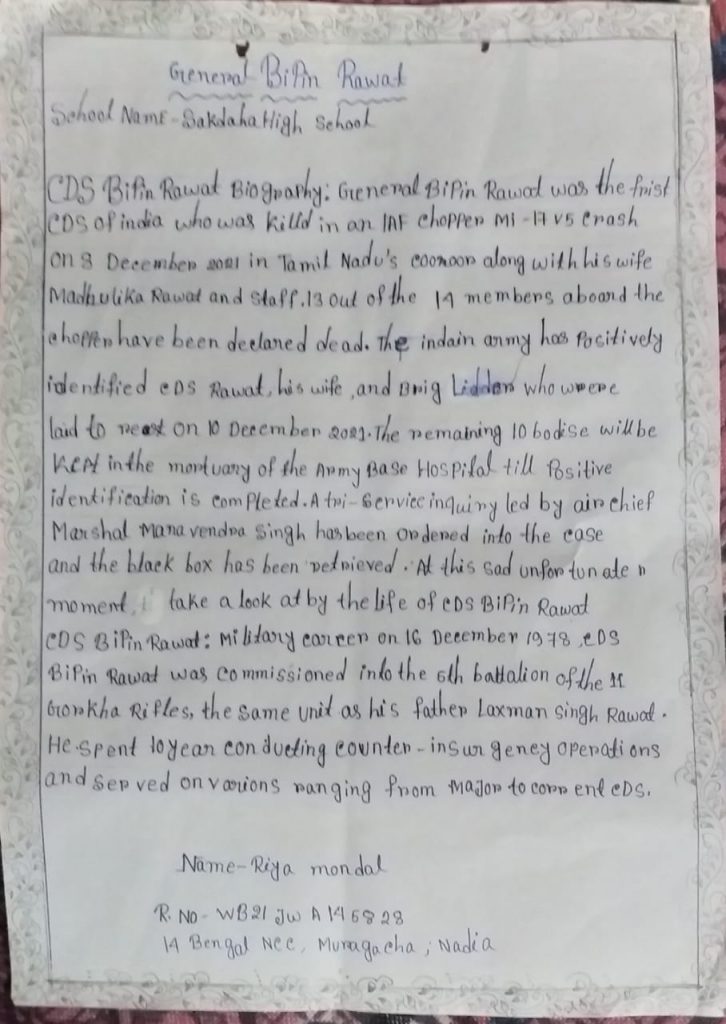 General BiPin Rawat
School Name - Sakdaha High School
CDS BiPin Rawat Biography: General BiPin Rawat was the frist
CDS of india who was killd in an IAF choPPer Mi - 17 v5 crash
on 8 December 2021 in Tamil Nadu's coonoor along with his wife
Madhulika Rawat and staff. 13 out of the 14 members aboard the
choPPer have been declared dead. The indain army has Positively
identified CDS Rawat, his wife, and Brig Lidder who wrere
laid to rest on 10 December 2021. The remaining 10 bodise will be
KePt in the mortuary of the Army Base HosPital till Positive
identification is completed. A tri - Service inquiry led by air chief
Marshal Manavendra Singh has been ordered into the case
and the black box has been retrieved. At this sad unfortunate
moment, take a look at by the life of CDS BiPin Rawat
CDS BiPin Rawat: Military career on 16 December 1978, CDS
BiPin Rawat was commissioned into the 5th battalion of the 11
Gorkha Rifles, the same unit as his father Laxman singh Rawat.
He spent 10 year conducting counter - insurgency operations
and served on varions ranging from Major to corrent CDS.
Name - Riya mondal
R. No - WB21 JW A 146828
14 Bengal Ncc, Muragacha, Nadia